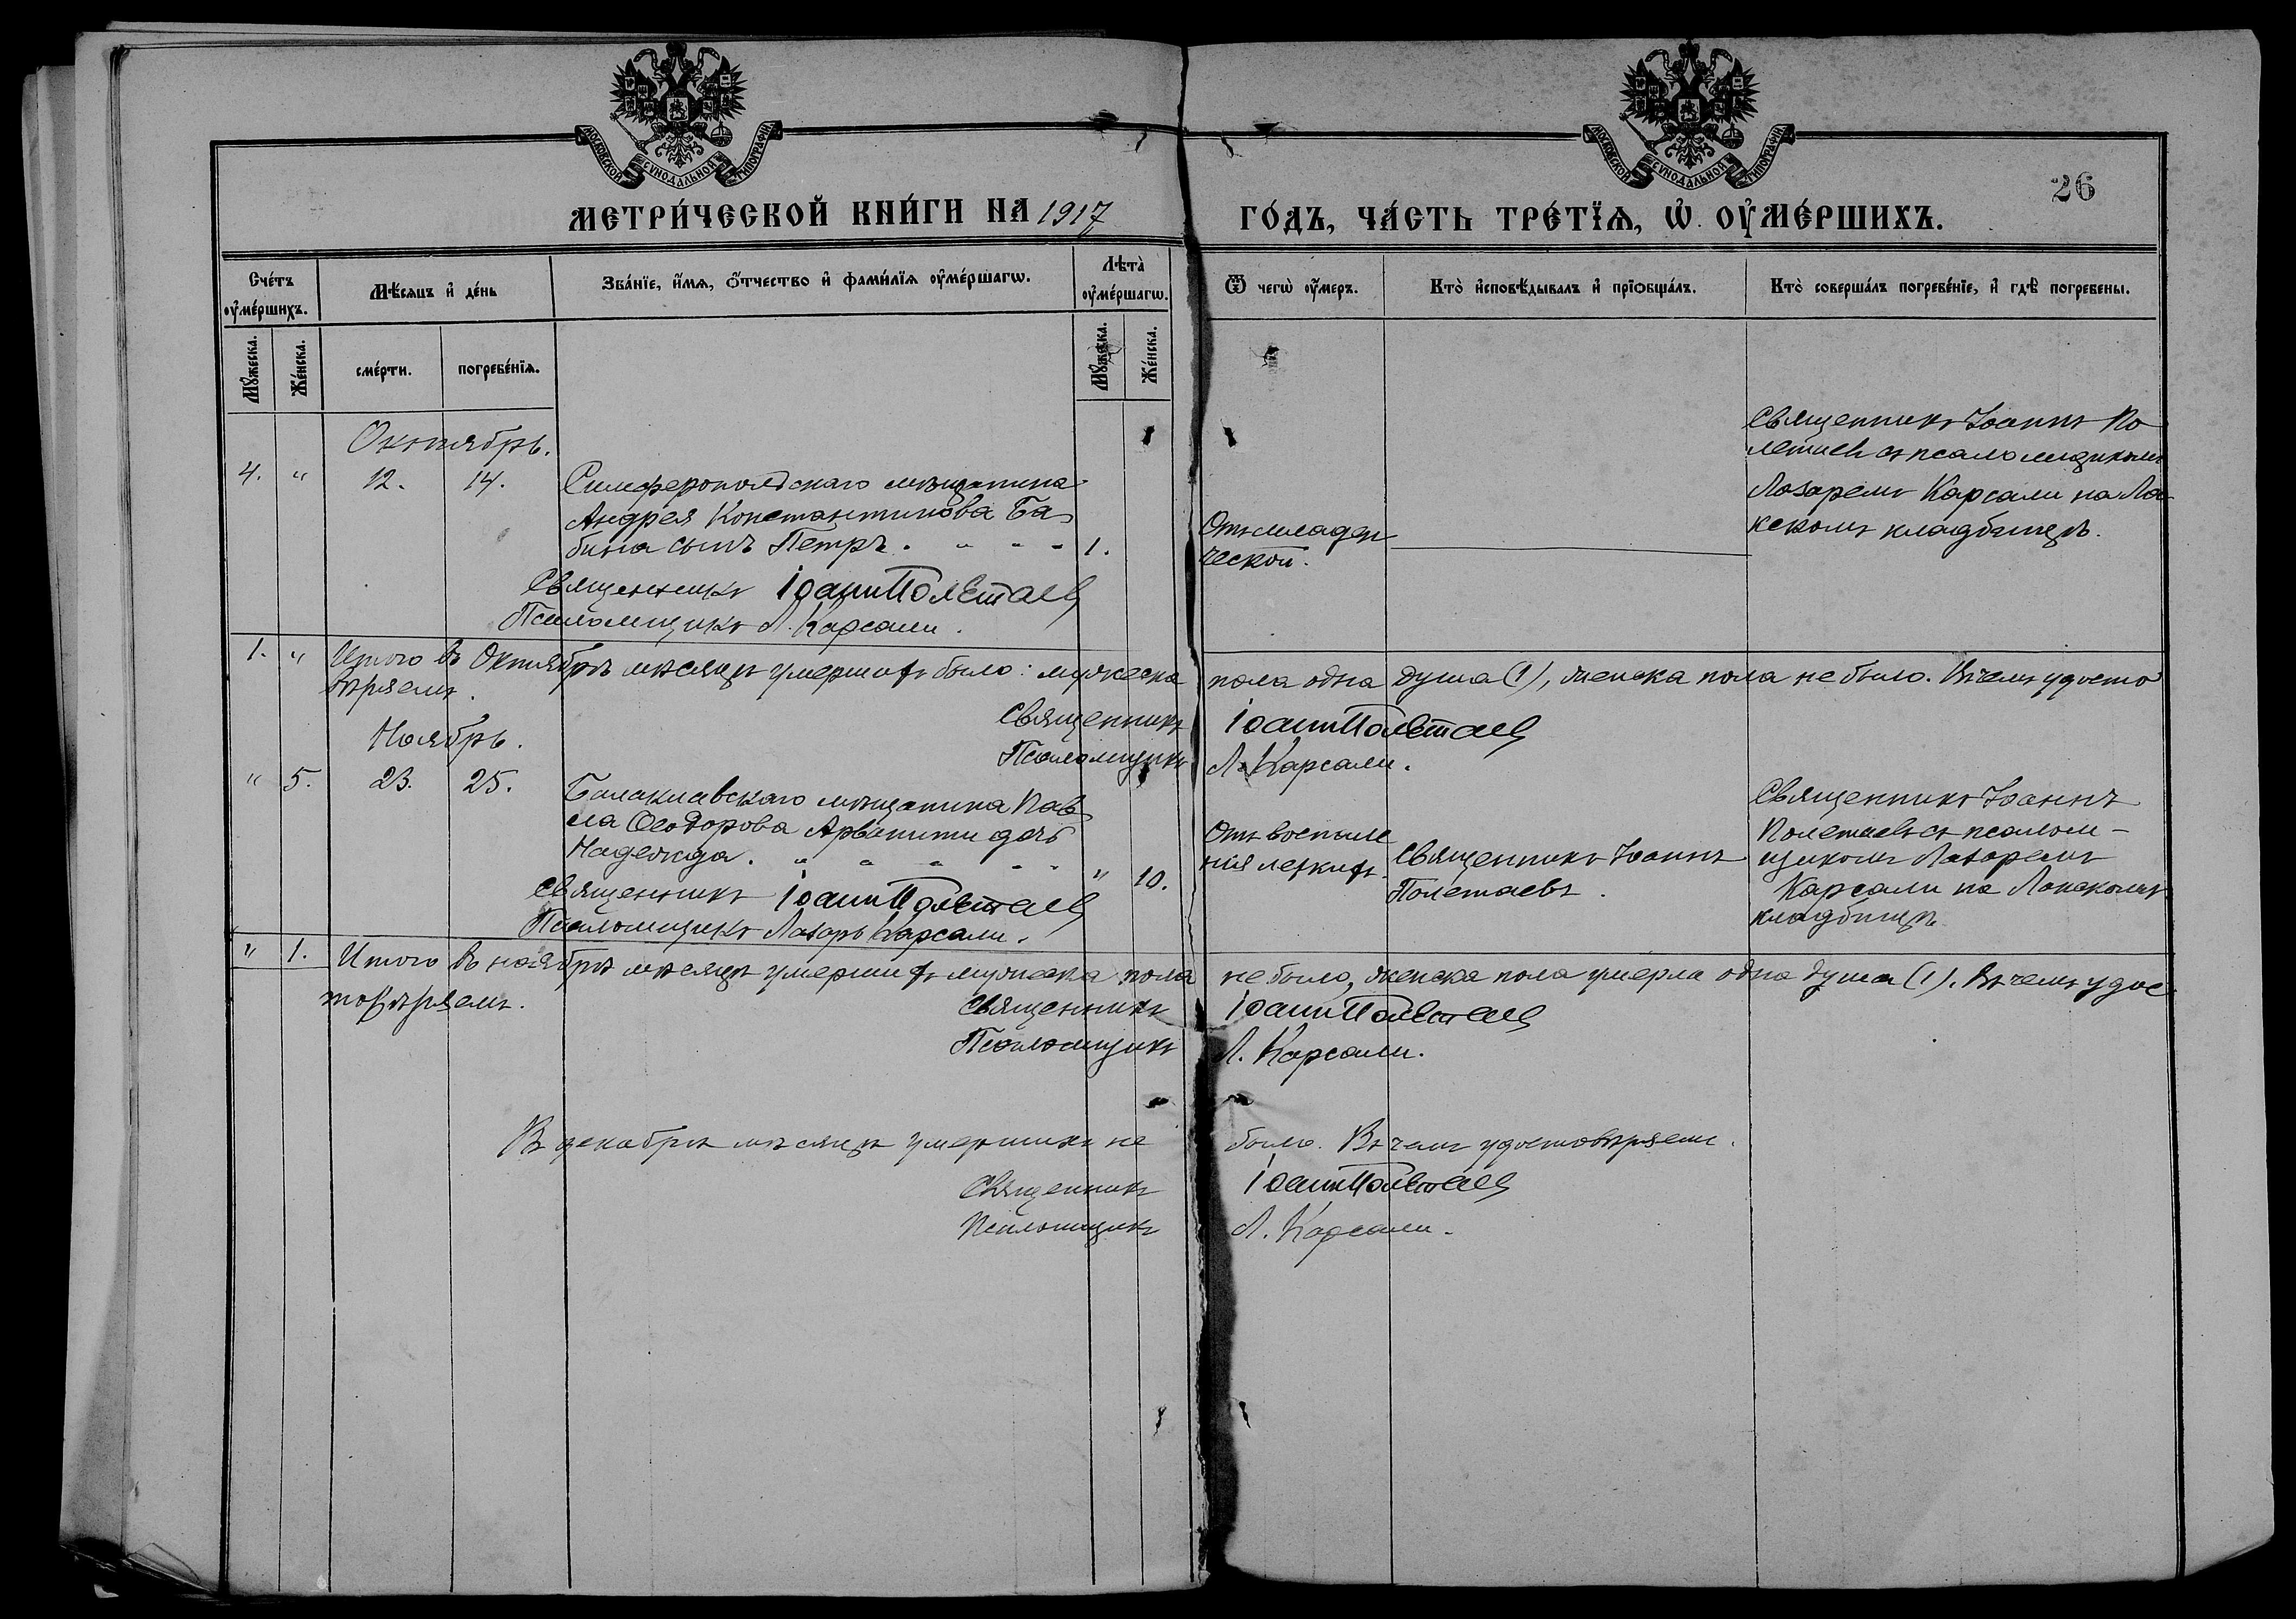 МОСКОВСКОЙ СУНОДАЛЬНОЙ ТИПОГРАФІИ
МОСКОВСКОЙ СУНОДАЛЬНОЙ ТИПОГРАФІИ
26
МЕТРИ́ЧЕСКОЙ КНИ́ГИ НА 1917 ГО́ДЪ, ЧА́СТЬ ТРЕ́ТЇѦ, Ѡ҆ ОУ҆МЕ́РШИХЪ.
Счéтъ оу҆мéршихъ.
Мѣ́сяцъ и҆ дéнь
Звáнїе, и҆́мѧ, ѻ҆́тчество и҆ фами́лїѧ оу҆мéршагѡ.
Лѣтà оу҆мéршагѡ.
Ѿ чегѡ̀ оу҆́меръ.
Ктò и҆сповѣ́дывалъ и҆ прїѻбщáлъ.
Ктò совершáлъ погребéнїе, и҆ гдѣ̀ погребены.
Мꙋ́жеска.
Жéнска.
смéрти.
погребéнїѧ.
Мꙋ́жеска.
Жéнска.
Октябрь.
4. " 12. 14.
Симферопольскаго мѣщанина
Андрея Константинова Ба-
бина сынъ Петръ. " " " 1.
Отъ младен
ческой.
Священникъ Іоаннъ По
летаевъ съ псаломщикомъ
Лазаремъ Карсали на Ла-
кскомъ кладбищѣ.
Священникъ Іоаннъ Полетаевъ
Псаломщикъ Л. Карсали.
1. " Итого въ Октябрѣ мѣсяцѣ умершихъ было: мужеска пола одна душа (1), женска пола не было. Въ чемъ удосто
вѣряемъ.
Священникъ Іоаннъ Полетаевъ
Псаломщикъ Л. Карсали.
Ноябрь.
" 5. 23. 25.
Балаклавскаго мѣщанина Пав
ла Ѳеодорова Арванити дочь
Надежда. " " " " " " 10.
Отъ воспале
нія легкихъ.
Священникъ Іоаннъ
Полетаевъ.
Священникъ Іоаннъ
Полетаевъ съ псалом-
щикомъ Лазаремъ
Карсали на Лакскомъ
кладбищѣ.
Священникъ Іоаннъ Полетаевъ
Псаломщикъ Лазарь Карсали.
" 1. Итого въ ноябрѣ мѣсяцѣ умершихъ мужеска пола не было, женска пола умерла одна душа (1). Въ чемъ удос
товѣряемъ.
Священникъ Іоаннъ Полетаевъ
Псаломщикъ Л. Карсали.
Въ декабрѣ мѣсяцѣ умершихъ не было. Въ чемъ удостовѣряемъ.
Священникъ Іоаннъ Полетаевъ
Псаломщикъ Л. Карсали.